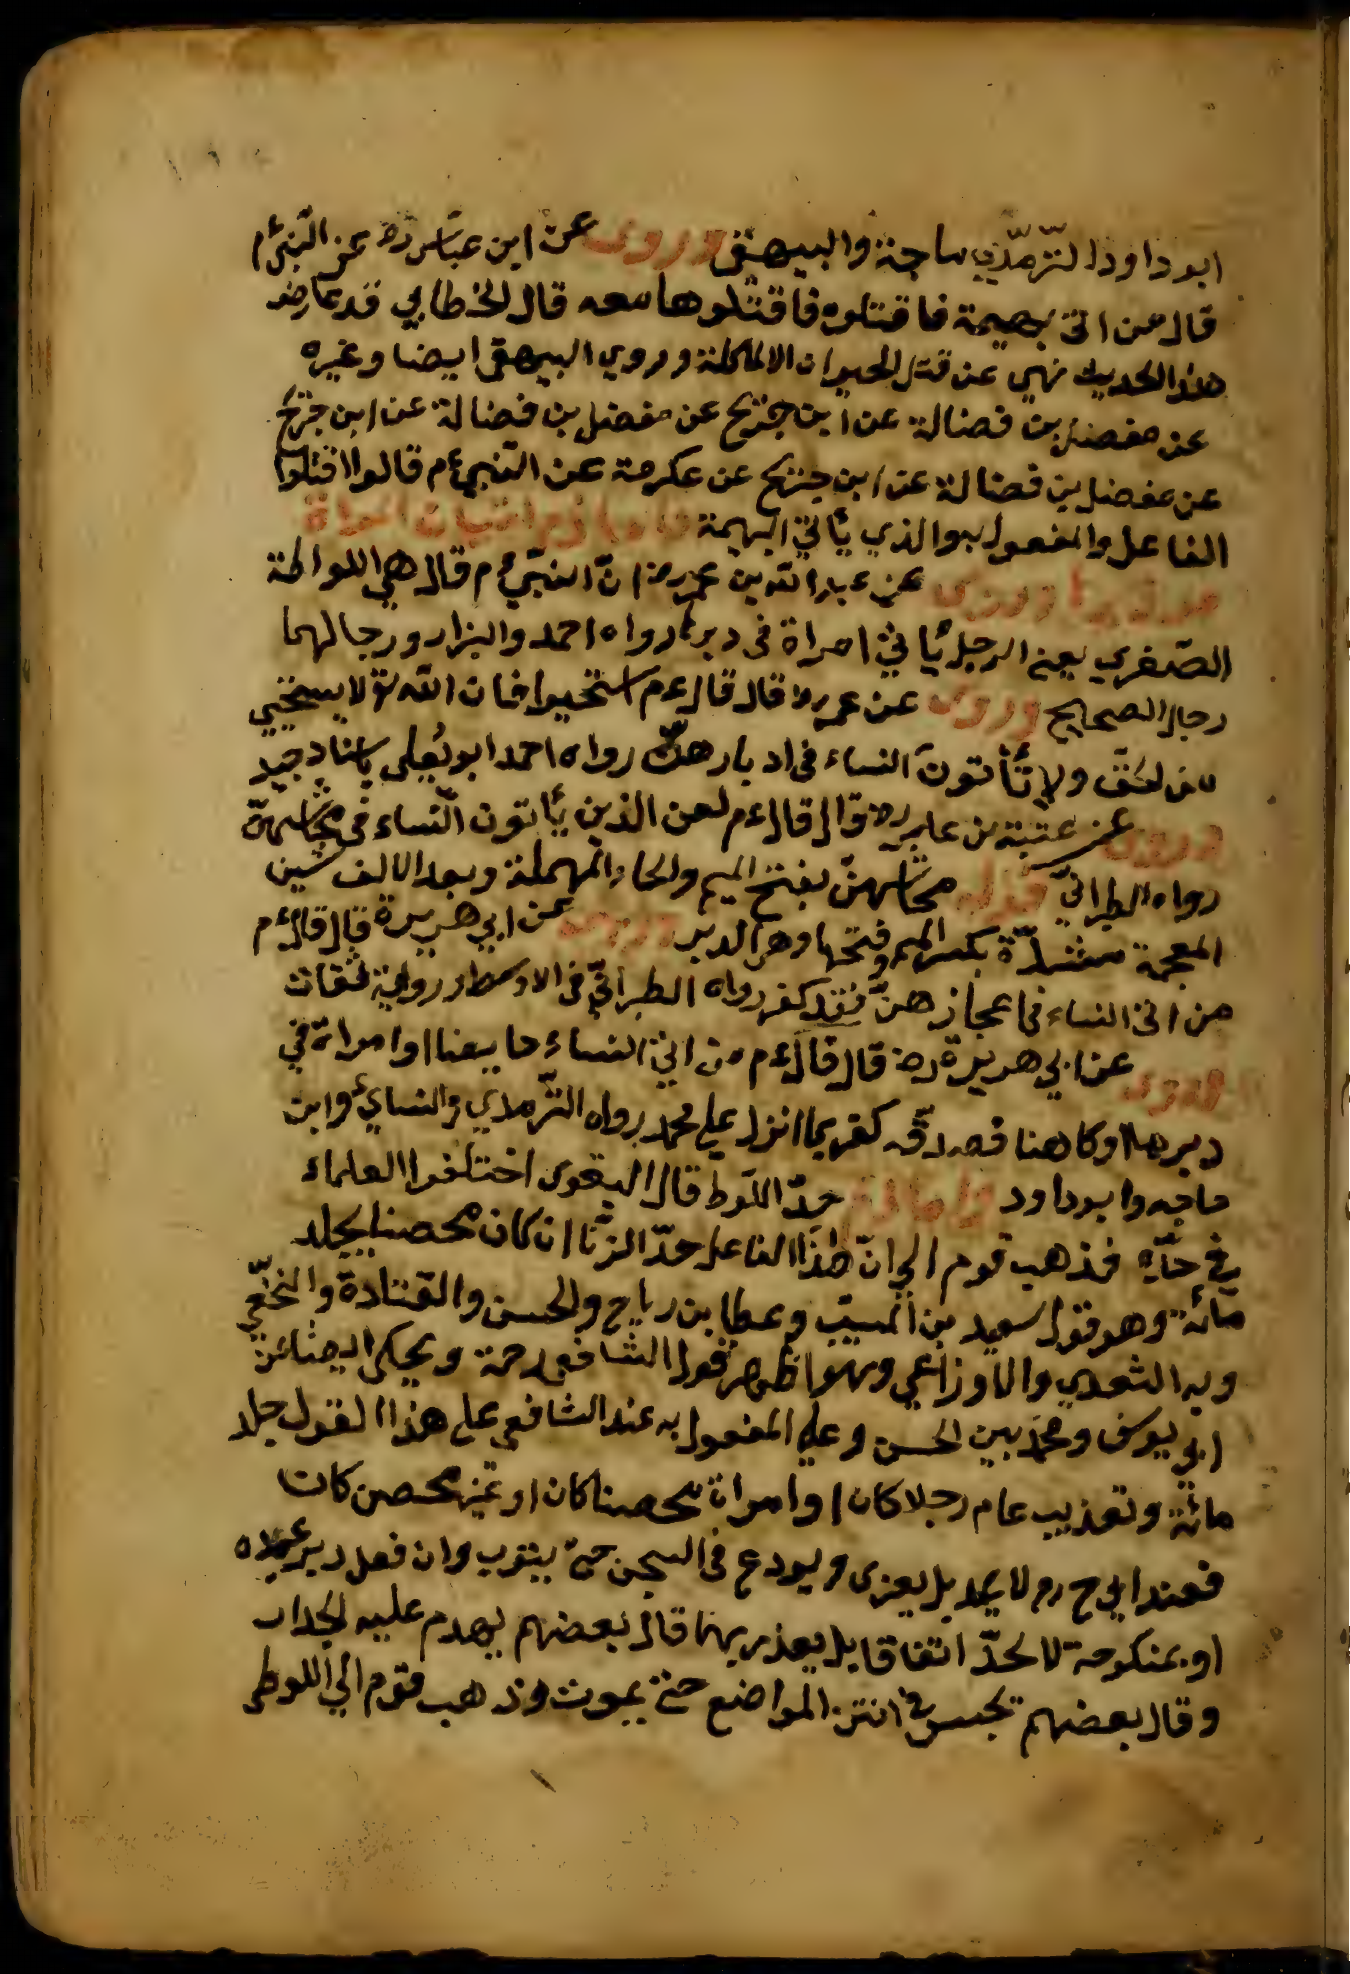 ابو داود الترّمذّي ماجة والبيهقى وروى عن ابن عبّاس رض عن النّبىّ ءم
قال من اتى بهيمة فاقتلوه فاقتلوها معه قال الخطابي قد عارض
هذا الحديث نهي عن قتل الحيوان الا لماكلة وروي البيهقى ايضا وغيره
عن مفضل بن فضالة عن ابن جريج عن مفضل بن فضالة عن ابن جريج
عن مفضل بن فضالة عن ابن جريج عن عكرمة عن النّبي ءم قالوا اقتلوا
الفاعل والمفعول به والذي يأتي البهيمة واما ما في اتيان المراة
في دبرها وروى عن عبد الله بن عمر رض انّ النبيّ ءم قال هي اللواطة
الصّغري يعني الرجل يأتي امراة فى دبرها رواه احمد والبزار ورجالهما
رجال الصحايح وروى عن عمر رض قال قال ءم استحيوا فان الله تع لا يستحيي
من الحقّ ولا تأتونَ النساء فى ادبارهنّ رواه احمد ابو يُعلى باسناد جيد
وروى عن عتبة بن عامر رض قال قال ءم لعن الذين يأتون النّساء فى محاشهنّ
رواه الطبرانيّ قوله محاشّهنّ بفتح الميم والحاء المهملة وبعد الالف شين
المعجمة مشدّدة بكسر الميم وفتحها وهى الدبر وروى عن ابي هريرة قال قال ءم
من اتى النساء فى اعجازهنّ فقد كفر رواه الطبرانيّ فى الاوسط ورواية ثقات
وروى عن ابي هريرة رض قال قال ءم من اتى النساء حايضا او امراة في
دبرها او كاهنا فصدقّه كفر بما انزل علي محمد رواه التّرمذي والنسائ وابن
ماجه وابو داود واما ما في حدّ اللّوط قال البغوى اختلفوا العلماء
في حدّه فذهب قوم الي انّ هٰذا الفاعل حدّ الزّنا ان كان محصنا يجلد
مائة وهو قول سعيد بن المسيّب وعطا بن رباح والحسن والقتادة والنخعّي
وبه الثوري والاوزاعي وهو اظهر قول الشافعي رحمة ويحكى ايضا عن
ابي يوسف ومحمّد بين الحسن وعلي المفعول به عند الشافعي على هذا القول جلد
مائة وتعذيب عام رجلا كان او امراة محصنا كان او غيّر محصن كان
فعند ابي ح رح لا يحد بل يعزى ويودع فى السجن حتى يتوب وان فعل دبر عبده
او بمنكوحة لا لحدّ اتفاقا بل يعذر بهما قال بعضهم يهدم عليه الجدار
وقال بعضهم تحبس فى انتن المواضع حتى يموت وذهب قوم الي اللوطى